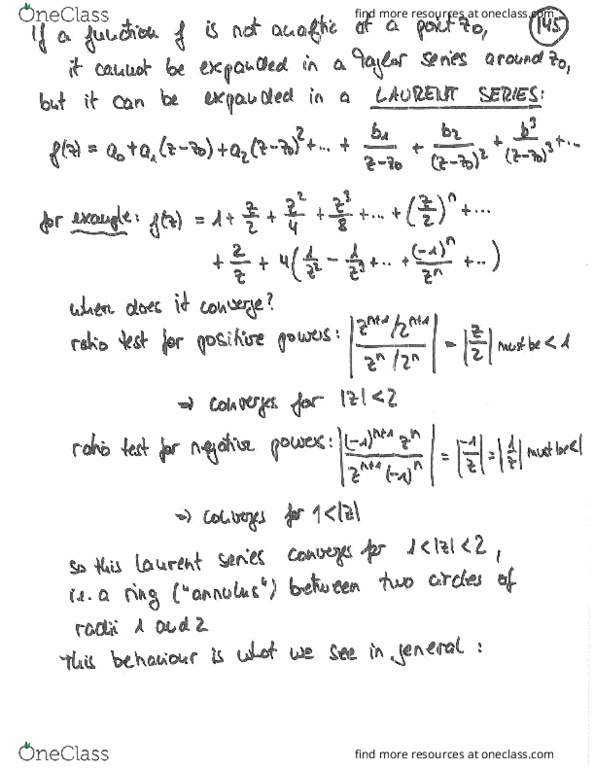 OneClass find more resources at oneclass.com
If a function f is not analytic at a point z₀, 145
it cannot be expanded in a Taylor series around z₀,
but it can be expanded in a LAURENT SERIES:
f(z) = a₀ + a₁(z-z₀) + a₂(z-z₀)² + ... + b₁/(z-z₀) + b₂/(z-z₀)² + b³/(z-z₀)³ + ...
for example: f(z) = 1 + z/2 + z²/4 + z³/8 + ... + (z/2)ⁿ + ...
+ 2/z + 4(1/z² - 1/z³ + ... + (-1)ⁿ/zⁿ + ...)
when does it converge?
ratio test for positive powers: |(zⁿ⁺¹/2ⁿ⁺¹)/(zⁿ/2ⁿ)| = |z/2| must be < 1
⇒ converges for |z| < 2
ratio test for negative powers: |((-1)ⁿ⁺¹ zⁿ)/(zⁿ⁺¹ (-1)ⁿ)| = |-1/z| = |1/z| must be < 1
⇒ converges for 1 < |z|
so this Laurent series converges for 1 < |z| < 2,
i.e. a ring ("annulus") between two circles of
radii 1 and 2
This behaviour is what we see in general:
OneClass find more resources at oneclass.com